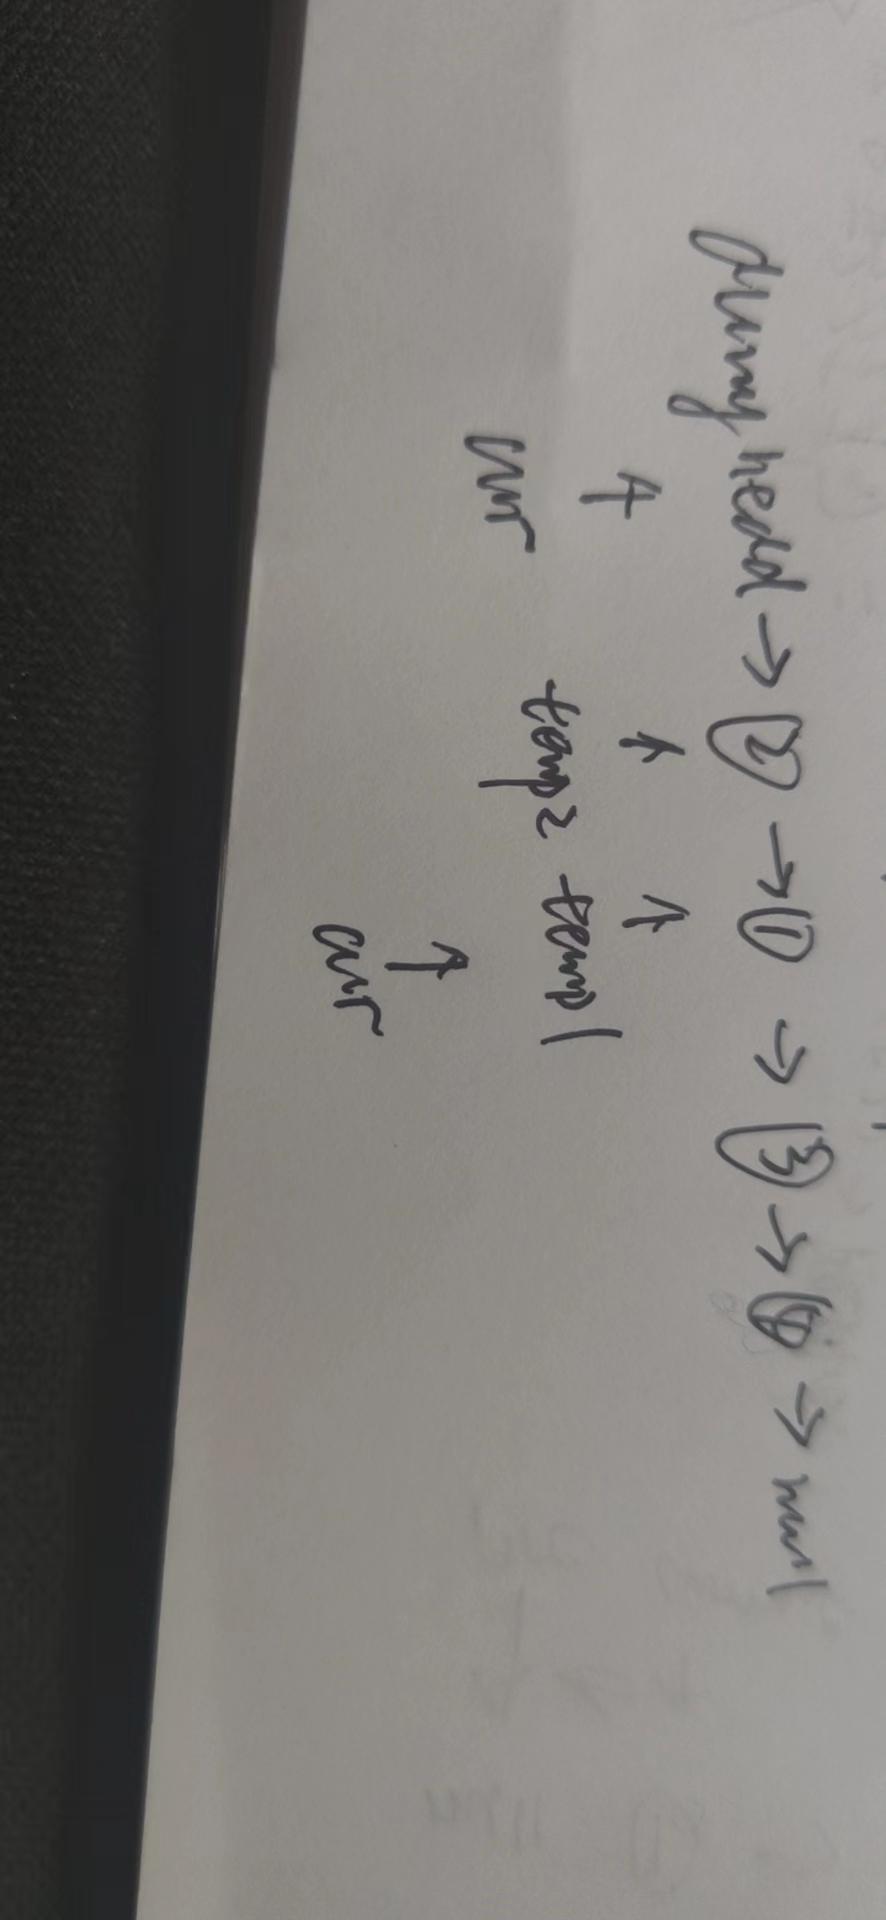 dummy head → ② → ① → ③ → ④ → null
↑ ↑ ↑
cur temp2 temp1
↑
cur